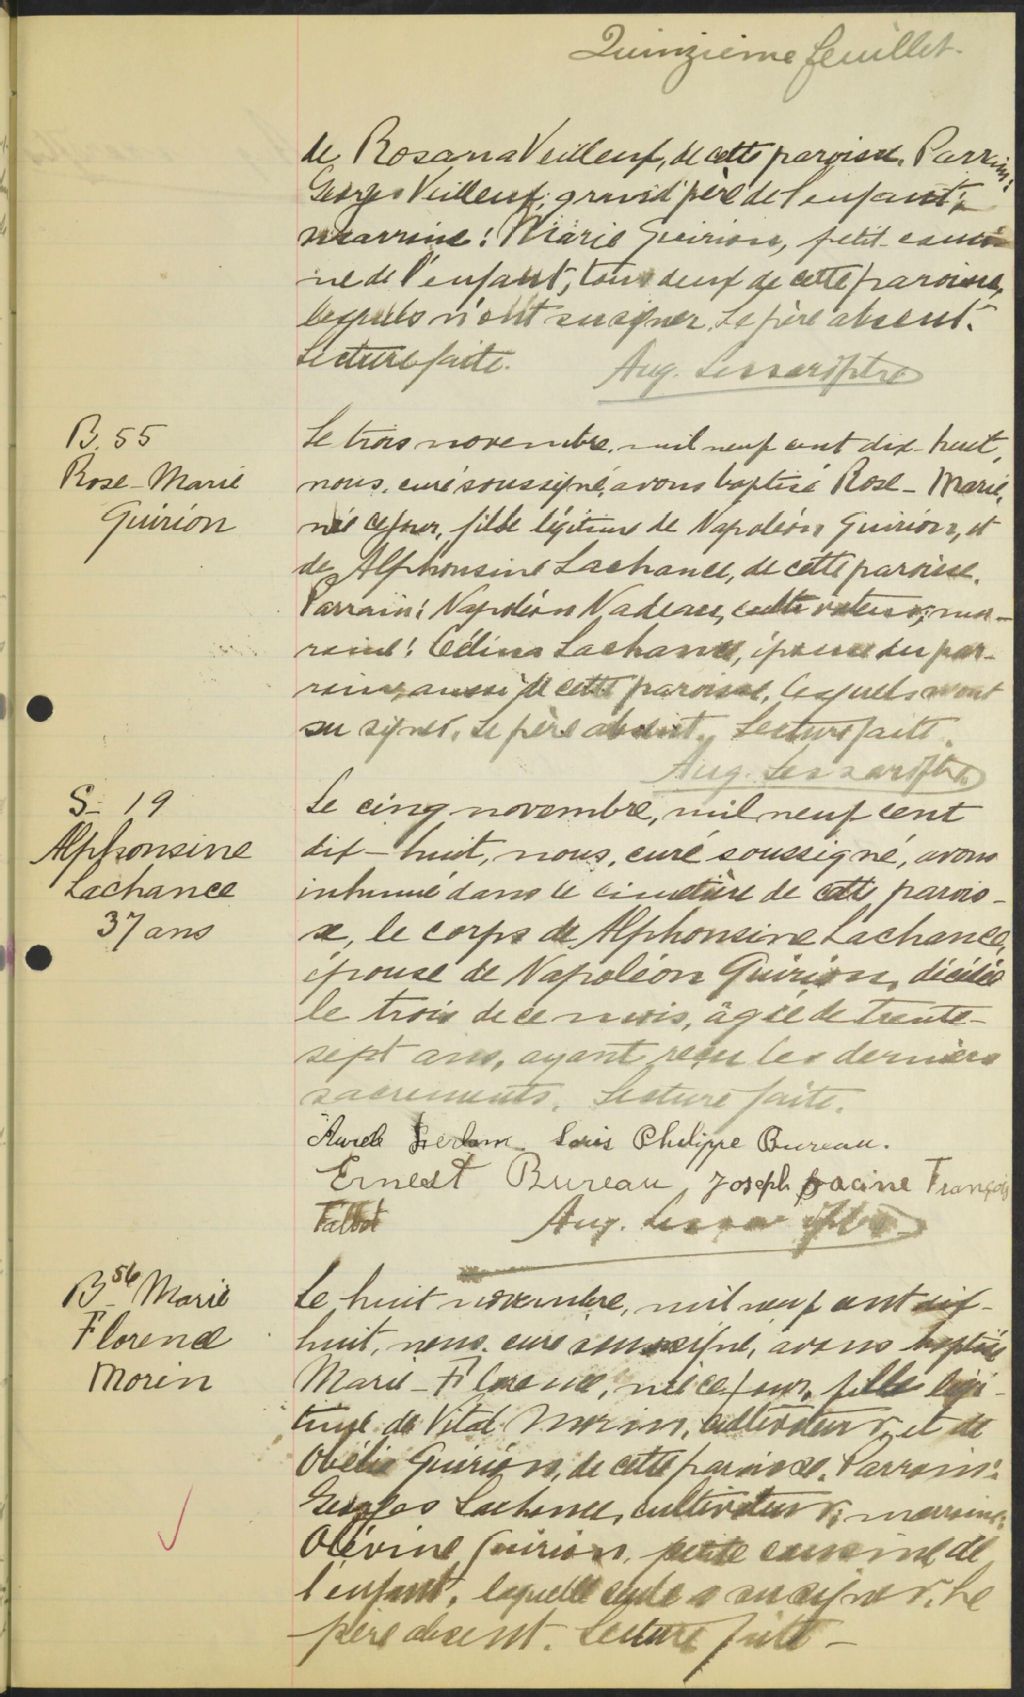 Quinzième feuillet
de Rosana Veilleux, de cette paroisse. Parrain:
Georges Veilleux, grand'père de l'enfant;
marraine: Marie Guirion, petit-cousi-
ne de l'enfant, tous deux de cette paroisse,
lesquels n'ont su signer. Le père absent.
Lecture faite. Aug. Lessard ptre
B. 55
Rose-Marie
Guirion
Le trois novembre, mil neuf cent dix-huit,
nous, curé soussigné, avons baptisé Rose-Marie,
née ce jour, fille légitime de Napoléon Guirion, et
de Alphonsine Lachance, de cette paroisse.
Parrain: Napoléon Nadeau, cultivateur; mar-
raine: Célina Lachance, épouse du par-
rain, aussi de cette paroisse, lesquels n'ont
su signer. Le père absent. Lecture faite.
Aug. Lessard ptre
S- 19
Alphonsine
Lachance
37 ans
Le cinq novembre, mil neuf cent
dix-huit, nous, curé soussigné, avons
inhumé dans le cimetière de cette parois-
se, le corps de Alphonsine Lachance,
épouse de Napoléon Guirion, décédée
le trois de ce mois, âgée de trente-
sept ans, ayant reçu les derniers
sacrements. Lecture faite.
Aurele Louis Philippe Bureau.
Ernest Bureau Joseph Racine François
Talbot Aug. Lessard ptre
B- 56 Marie
Florence
Morin
Le huit novembre, mil neuf cent dix-
huit, nous, curé soussigné, avons baptisé
Marie-Florence, née ce jour, fille légi-
time de Vital Morin, cultivateur, et de
Obélie Guirion, de cette paroisse. Parrain:
Georges Lachance, cultivateur; marraine:
Olévine Guirion, petite cousine de
l'enfant, laquelle seule a su signer. Le
père absent. Lecture faite-